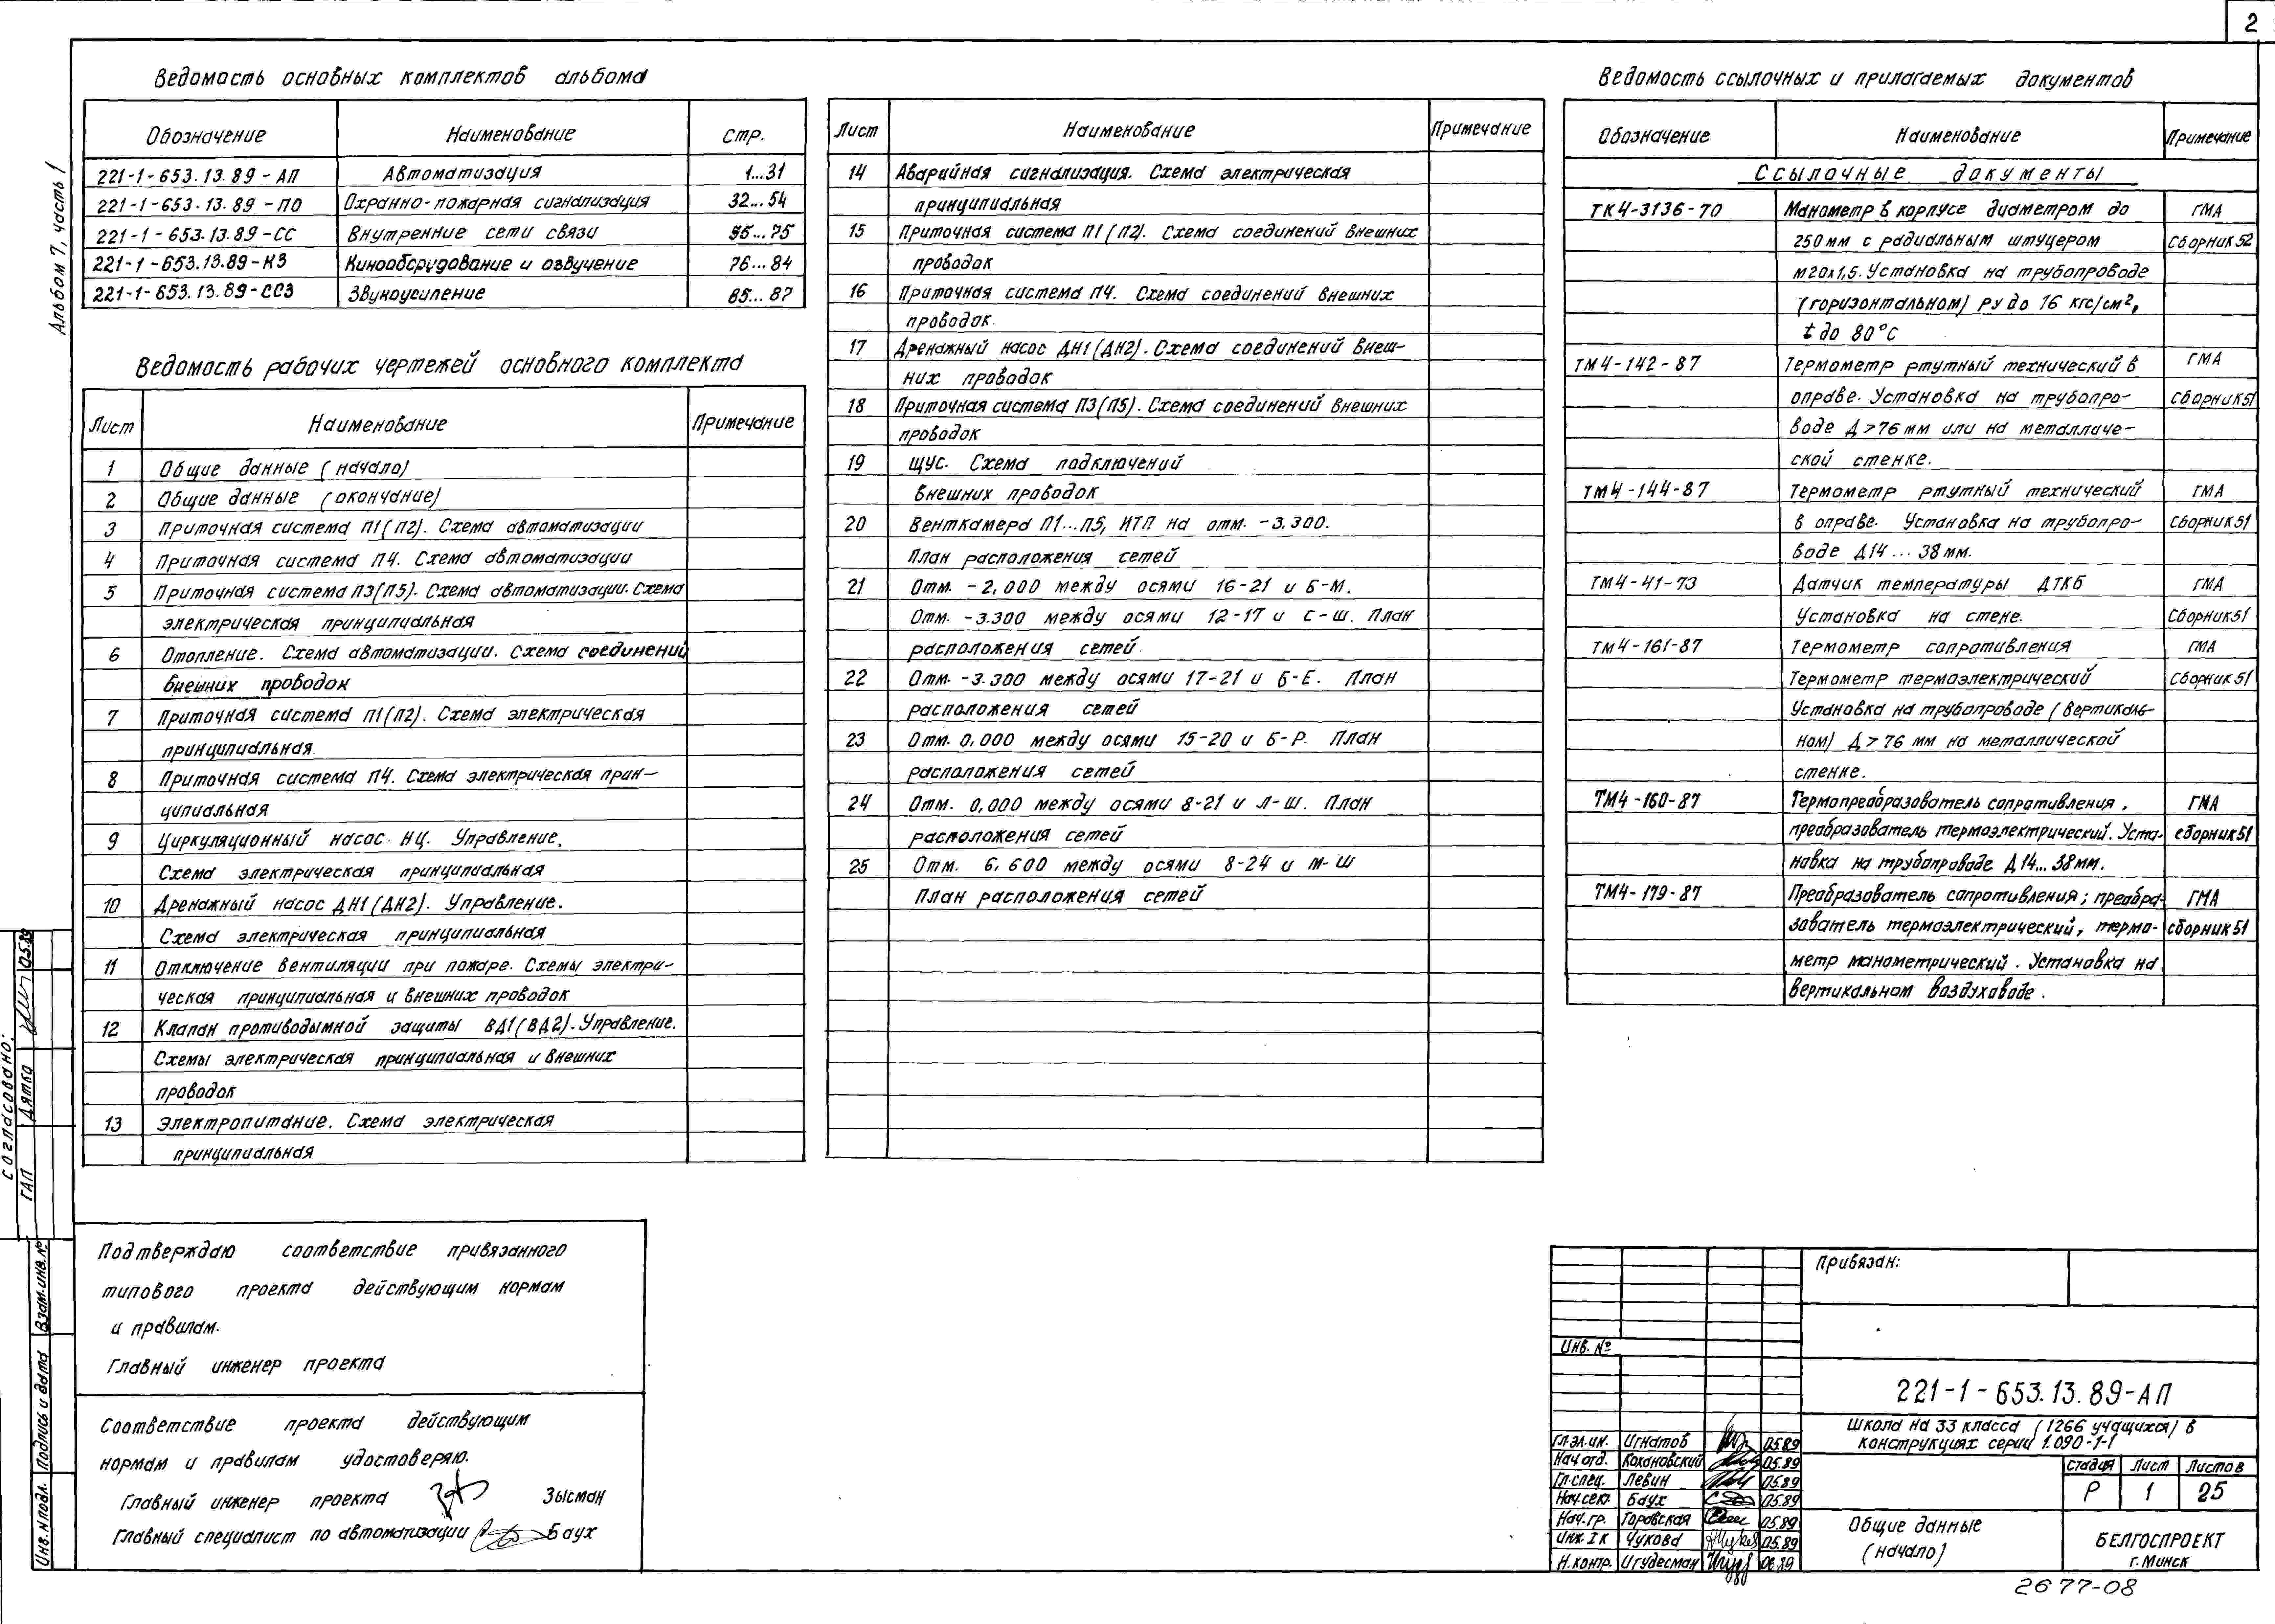 2
Альбом 7, часть 1
Ведомость основных комплектов альбома
Обозначение Наименование Стр.
221-1-653.13.89-АП Автоматизация 1...31
221-1-653.13.89-ПО Охранно-пожарная сигнализация 32...54
221-1-653.13.89-СС Внутренние сети связи 55...75
221-1-653.13.89-КЗ Кинооборудование и озвучение 76...84
221-1-653.13.89-ССЗ Звукоусиление 85...87
Ведомость рабочих чертежей основного комплекта
Лист Наименование Примечание
1 Общие данные (начало)
2 Общие данные (окончание)
3 Приточная система П1(П2). Схема автоматизации
4 Приточная система П4. Схема автоматизации
5 Приточная система П3(П5). Схема автоматизации. Схема
электрическая принципиальная
6 Отопление. Схема автоматизации. Схема соединений
внешних проводок
7 Приточная система П1(П2). Схема электрическая
принципиальная
8 Приточная система П4. Схема электрическая прин-
ципиальная
9 Циркуляционный насос НЦ. Управление.
Схема электрическая принципиальная
10 Дренажный насос ДН1(ДН2). Управление.
Схема электрическая принципиальная
11 Отключение вентиляции при пожаре. Схемы электри-
ческая принципиальная и внешних проводок
12 Клапан противодымной защиты ВД1(ВД2). Управление.
Схемы электрическая принципиальная и внешних
проводок
13 Электропитание. Схема электрическая
принципиальная
Лист Наименование Примечание
14 Аварийная сигнализация. Схема электрическая
принципиальная
15 Приточная система П1(П2). Схема соединений внешних
проводок
16 Приточная система П4. Схема соединений внешних
проводок.
17 Дренажный насос ДН1(ДН2). Схема соединений внеш-
них проводок
18 Приточная система П3(П5). Схема соединений внешних
проводок
19 ЩУС. Схема подключений
внешних проводок
20 Венткамера П1...П5, ИТП на отм. -3.300.
План расположения сетей
21 Отм. -2,000 между осями 16-21 и Б-М.
Отм. -3.300 между осями 12-17 и С-Ш. План
расположения сетей
22 Отм. -3.300 между осями 17-21 и Б-Е. План
расположения сетей
23 Отм. 0,000 между осями 15-20 и Б-Р. План
расположения сетей
24 Отм. 0,000 между осями 8-21 и Л-Ш. План
расположения сетей
25 Отм. 6,600 между осями 8-24 и М-Ш
План расположения сетей
Ведомость ссылочных и прилагаемых документов
Обозначение Наименование Примечание
Ссылочные документы
ТК4-3136-70 Манометр в корпусе диаметром до ГМА
250 мм с радиальным штуцером Сборник 52
М20х1,5. Установка на трубопроводе
(горизонтальном) Ру до 16 кгс/см²,
t до 80°С
ТМ4-142-87 Термометр ртутный технический в ГМА
оправе. Установка на трубопро- Сборник 51
воде Д>76 мм или на металличе-
ской стенке.
ТМ4-144-87 Термометр ртутный технический ГМА
в оправе. Установка на трубопро- Сборник 51
воде Д14...38 мм.
ТМ4-41-73 Датчик температуры ДТКБ ГМА
Установка на стене. Сборник 51
ТМ4-161-87 Термометр сопротивления ГМА
Термометр термоэлектрический Сборник 51
Установка на трубопроводе (вертикаль-
ном) Д>76 мм на металлической
стенке.
ТМ4-160-87 Термопреобразователь сопротивления, ГМА
преобразователь термоэлектрический. Уста- сборник 51
новка на трубопроводе Д14...38 мм.
ТМ4-179-87 Преобразователь сопротивления; преобра- ГМА
зователь термоэлектрический, термо- сборник 51
метр манометрический. Установка на
вертикальном воздуховоде.
Согласовано:
ГАП Дятко 05.89
Взам. инв. №
Подпись и дата
Инв. № подл.
Подтверждаю соответствие привязанного
типового проекта действующим нормам
и правилам.
Главный инженер проекта
Соответствие проекта действующим
нормам и правилам удостоверяю.
Главный инженер проекта Зысман
Главный специалист по автоматизации Баух
Привязан:
Инв. №
221-1-653.13.89-АП
Школа на 33 класса (1266 учащихся) в
конструкциях серии 1.090-1-1
Гл.эл.ин. Игнатов 05.89
Нач.отд. Кохановский 05.89
Гл.спец. Левин 05.89
Нач.сек. Баух 05.89
Нач.гр. Горовская 05.89
Инж. I К Чукова 05.89
Н.контр. Игудесман 06.89
Стадия Лист Листов
Р 1 25
Общие данные
(начало)
БЕЛГОСПРОЕКТ
г. Минск
2677-08